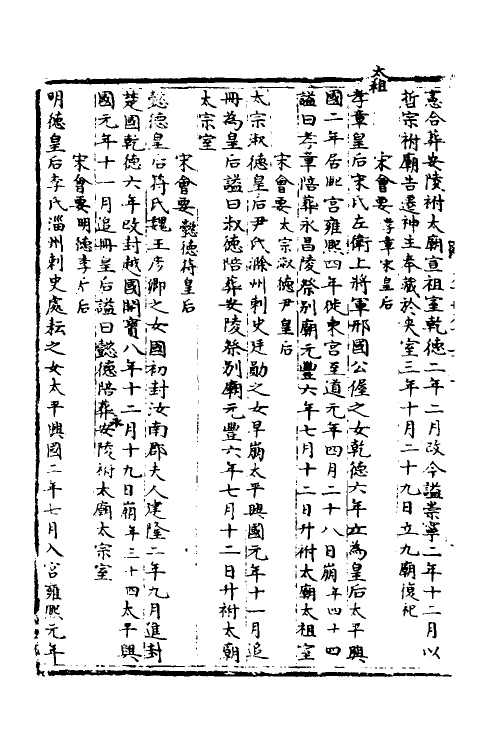 憲合葬安陵祔太廟宣祖室乾德二年二月改今謚崇寧二年十二月以
哲宗祔廟告遷神主奉藏於夾室三年十月二十九日立九廟復祀
宋會要孝章宋皇后
太祖
孝章皇后宋氏左衛上將軍邢國公偓之女乾德六年立為皇后太平興
國二年居西宮雍熙四年徙東宮至道元年四月二十八日崩年四十四
謚曰孝章陪葬永昌陵祭别廟元豐六年七月十二日升祔太廟太祖室
宋會要太宗淑德尹皇后
太宗淑德皇后尹氏滁州刺史廷勛之女早崩太平興國元年十一月追
冊為皇后謚曰淑德陪葬安陵祭别廟元豐六年七月十二日升祔太廟
太宗室
宋會要懿德符皇后
懿德皇后符氏魏王彦卿之女國初封汝南郡夫人建隆二年九月進封
楚國乾德六年改封越國開寶八年十二月十九日崩年三十四太平興
國元年十一月追冊皇后謚曰懿德陪葬永安陵祔太廟太宗室
宋會要明德李后
明德皇后李氏淄州刺史處耘之女太平興國二年七月入宮雍熙元年